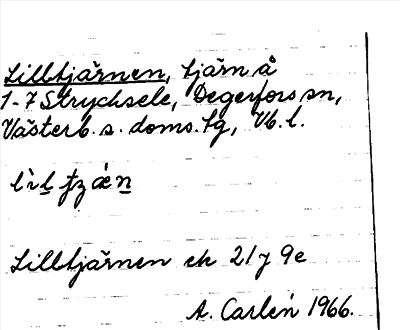 Lilltjärnen, tjärn å
1-7 Strycksele, Degerfors sn,
Västerb. s. doms. tg, Vb. l.
Lilltjärnen ek 21 J 9e
A. Carlén 1966.